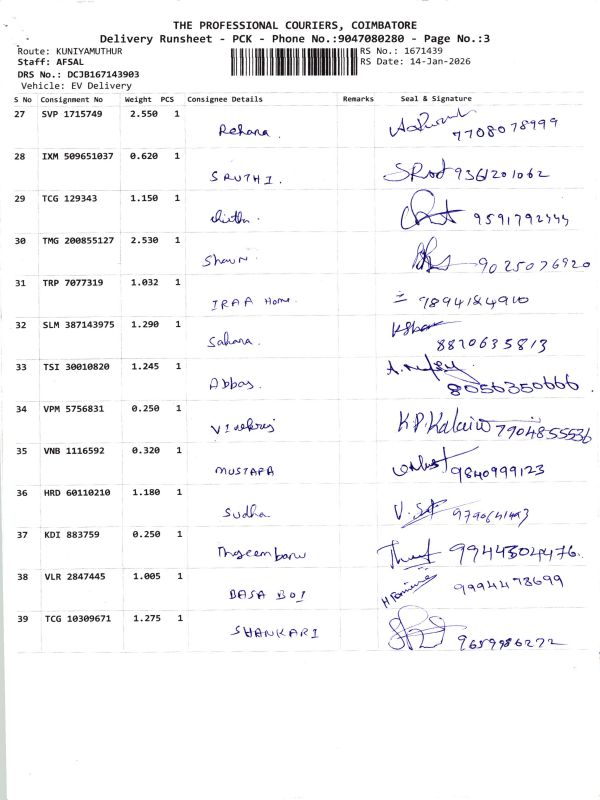 THE PROFESSIONAL COURIERS, COIMBATORE
Delivery Runsheet - PCK - Phone No.:9047080280 - Page No.:3
Route: KUNIYAMUTHUR RS No.: 1671439
Staff: AFSAL RS Date: 14-Jan-2026
DRS No.: DCJB167143903
Vehicle: EV Delivery
S No Consignment No Weight PCS Consignee Details Remarks Seal & Signature
27 SVP 1715749 2.550 1
Rehana. 7708078999
28 IXM 509651037 0.620 1
SRUTHI. 9361201062
29 TCG 129343 1.150 1
chitha. 9591792444
30 TMG 200855127 2.530 1
Shaun. 9025076920
31 TRP 7077319 1.032 1
IRAA Home. 7894184910
32 SLM 387143975 1.290 1
Sahana. 8870635813
33 TSI 30010820 1.245 1
Abbas. 8056350666.
34 VPM 5756831 0.250 1
K.P.Kalai 7904855536
35 VNB 1116592 0.320 1
MUSTAFA 9840999123
36 HRD 60110210 1.180 1
Sudha V.
37 KDI 883759 0.250 1
9944304476.
38 VLR 2847445 1.005 1
BASA BOI 9994478699
39 TCG 10309671 1.275 1
SHANKARI 9659986272